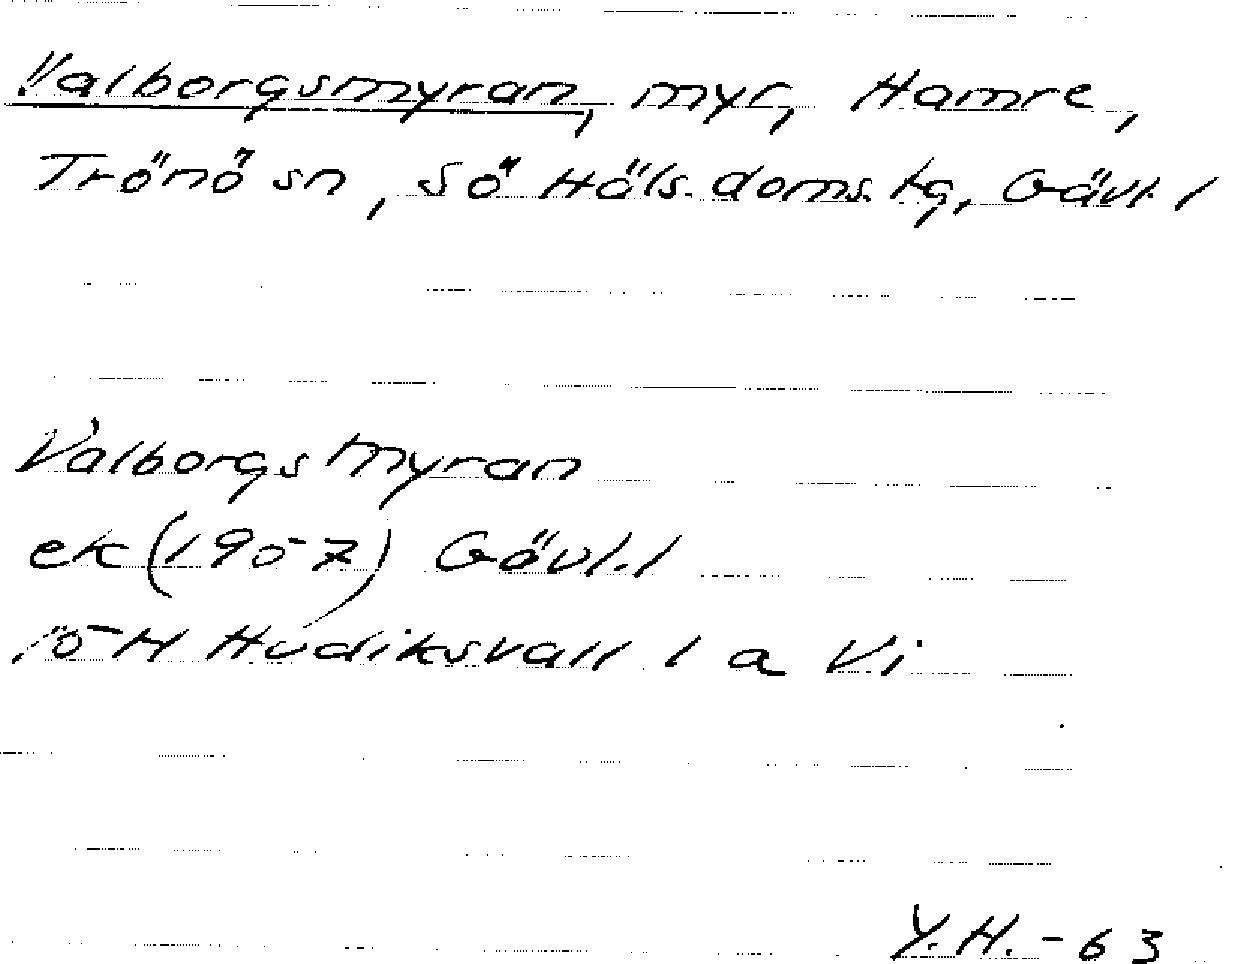 Valborgsmyran, myr, Hamre,
Trönö sn, Sö Häls. doms. tg, Gävl. l
Valborgsmyran
ek (1957) Gävl. l
15 H Hudiksvall 1 a Vi
Y.H. - 63